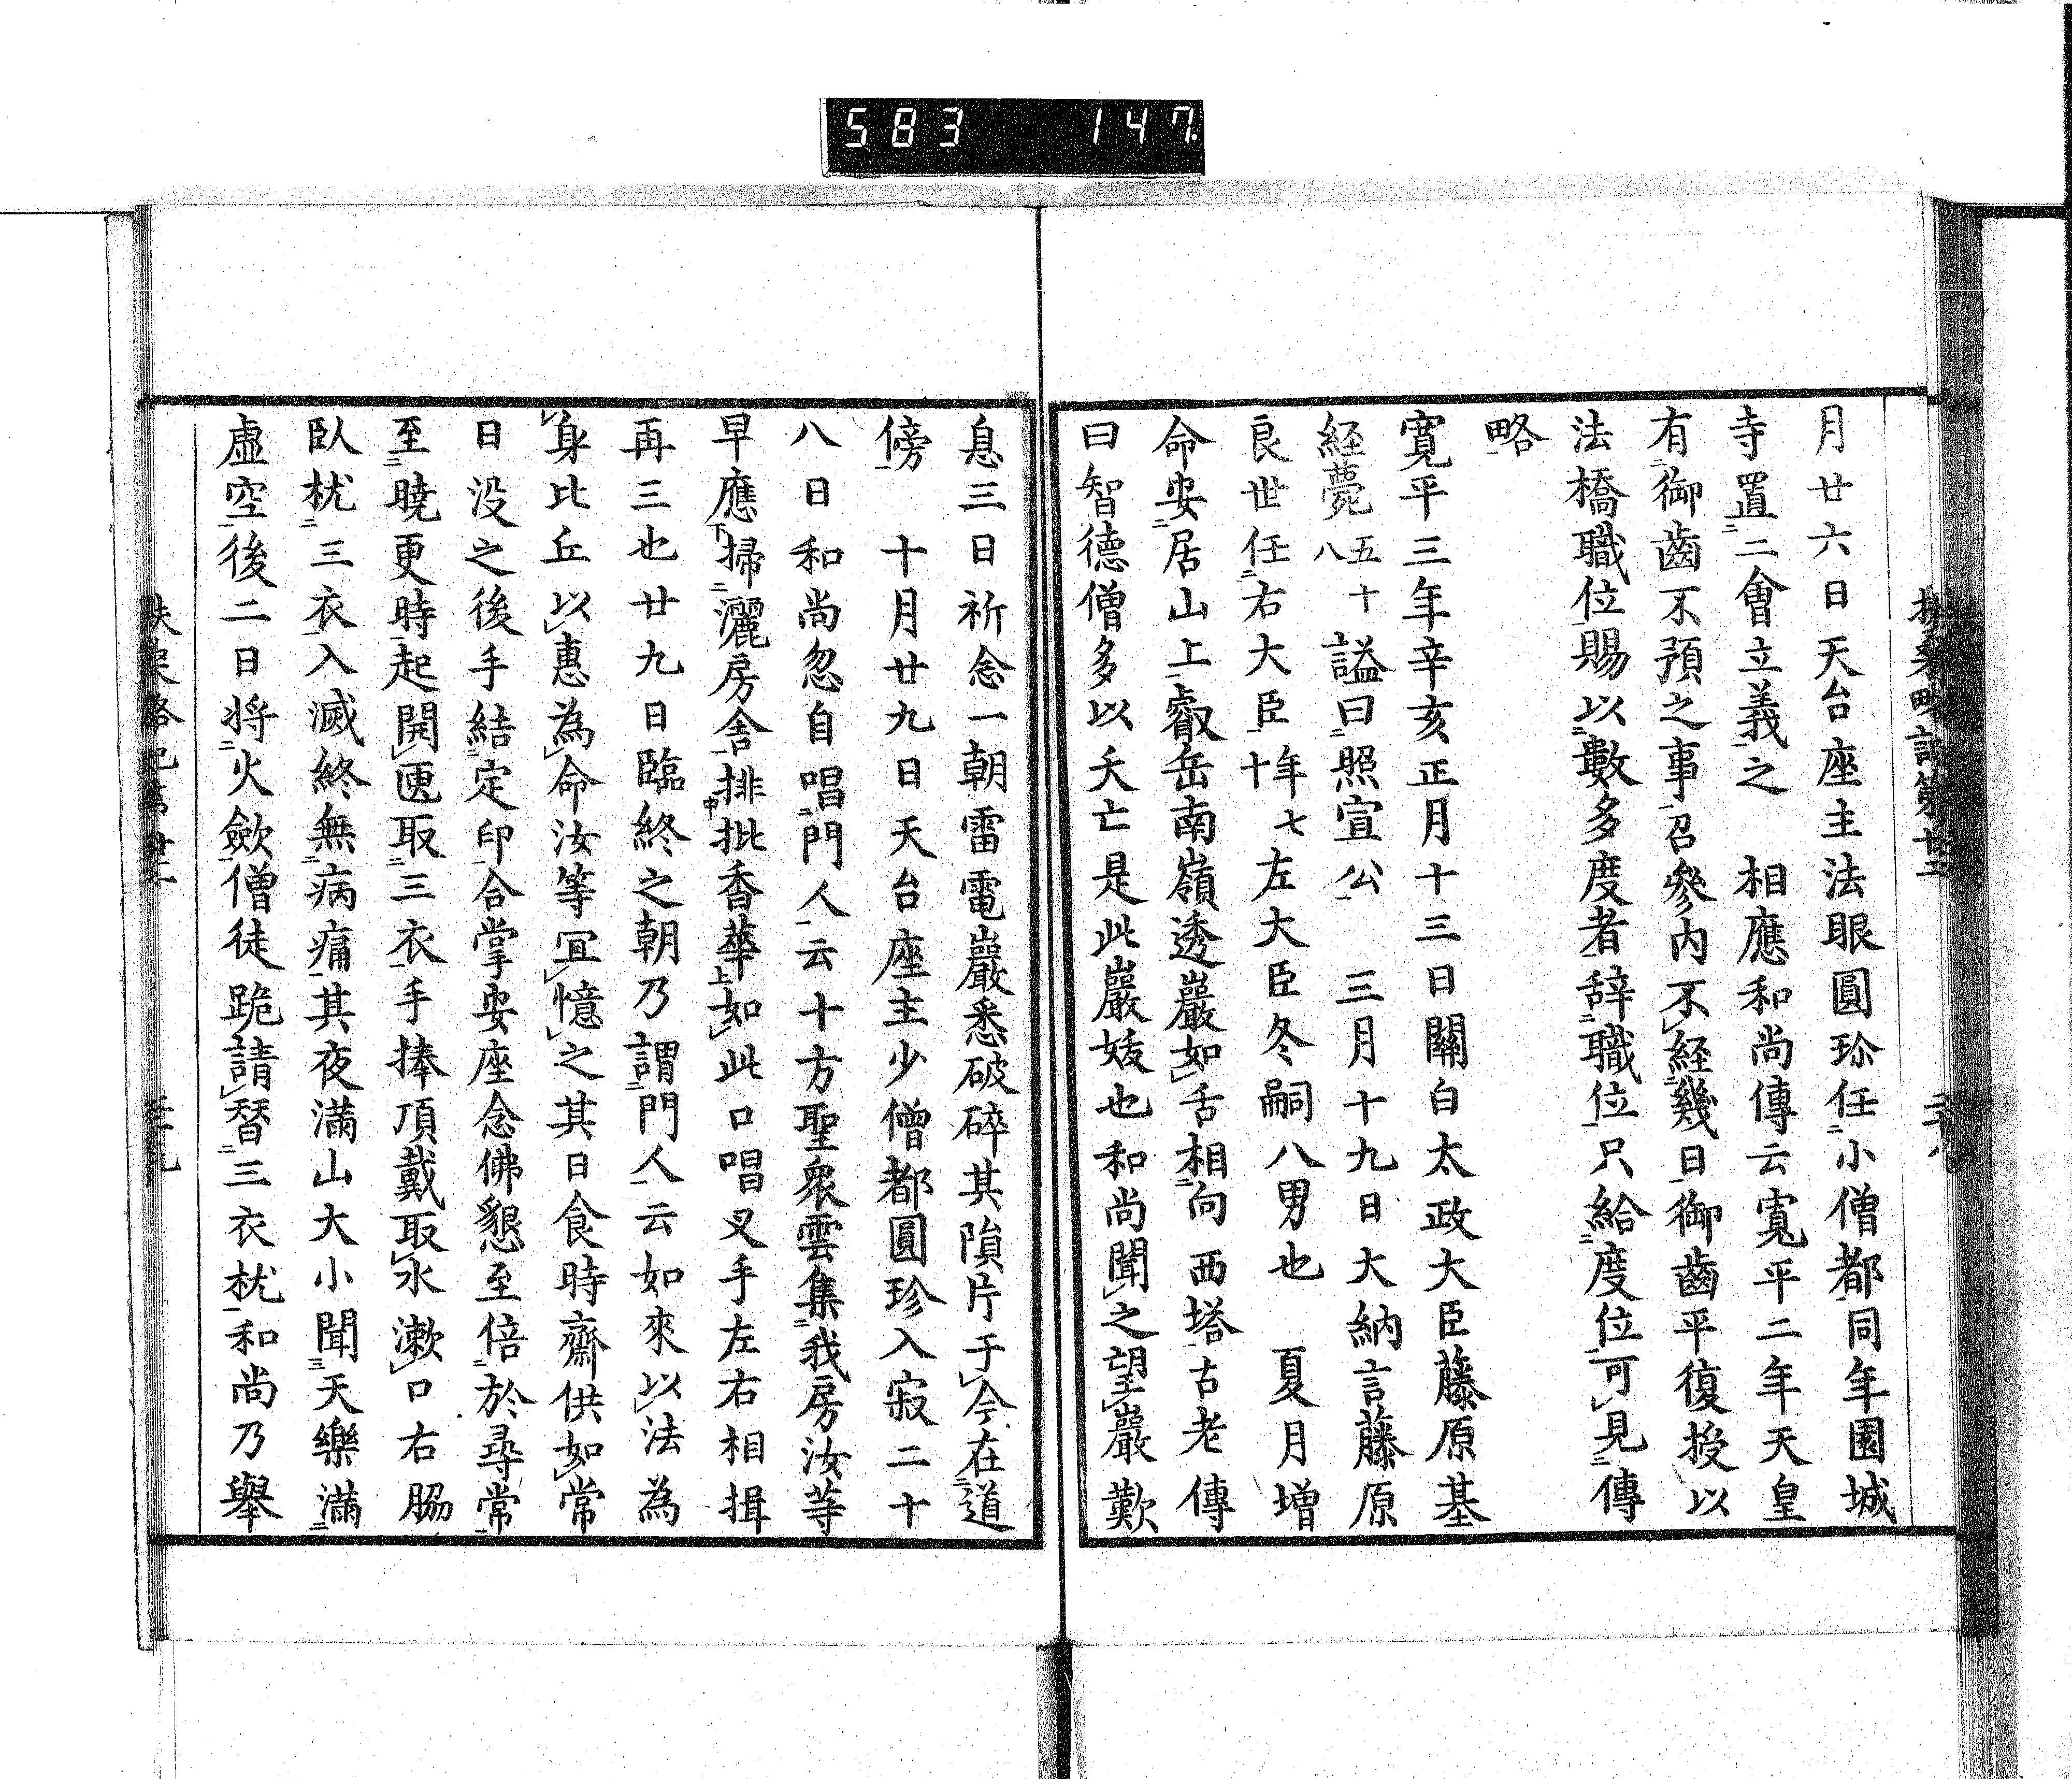 583 147
月廿六日天台座主法眼圓珎任小僧都同年園城
寺置二會立義之 相應和尚傳云寛平二年天皇
有御齒不預之事召參内不経幾日御齒平復授以
法橋職位賜以數多度者辞職位只給度位可見傳
略
寛平三年辛亥正月十三日關白太政大臣藤原基
経薨五十八 謚曰照宣公 三月十九日大納言藤原
良世任右大臣年七十左大臣冬嗣八男也 夏月增
命安居山上叡岳南嶺透巖如舌相向西塔古老傳
曰智德僧多以夭亡是此巖妭也和尚聞之望巖歎
息三日祈念一朝雷電巖悉破碎其隕片于今在道
傍 十月廿九日天台座主少僧都圓珍入寂二十
八日和尚忽自唱門人云十方聖衆雲集我房汝等
早應掃灑房舍排批香華如此口唱叉手左右相揖
再三也廿九日臨終之朝乃謂門人云如來以法為
身比丘以惠為命汝等宜憶之其日食時齋供如常
日没之後手結定印合掌安座念佛懇至倍於尋常
至曉更時起開匣取三衣手捧頂戴取水漱口右脇
臥枕三衣入滅終無病痛其夜滿山大小聞天樂滿
虚空後二日将火歛僧徒跪請替三衣枕和尚乃舉